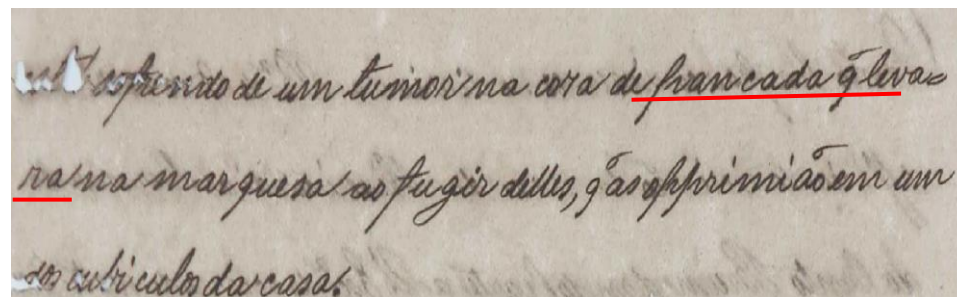 sofrendo de um tumor na coxa de francada q̃ leva=
ra na marqueza ao fugir delles, q̃ as opprimião em um
dos cubiculos da casa.